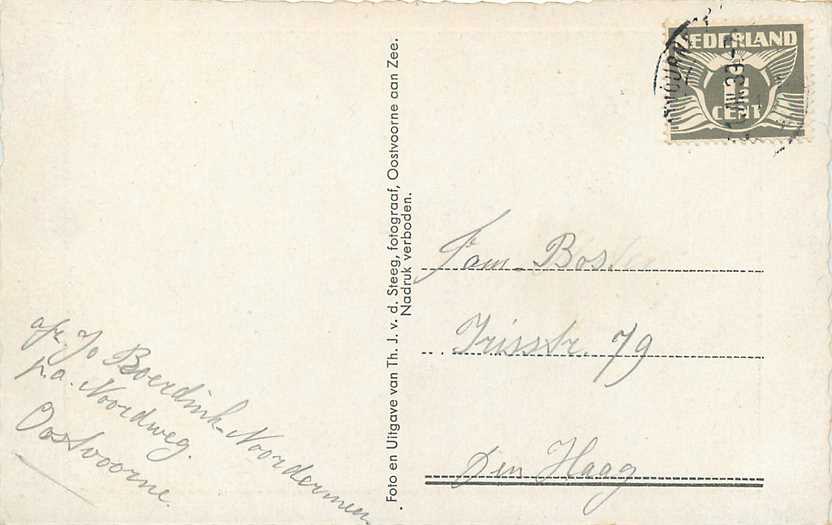 NEDERLAND
CENT
Foto en Uitgave van Th. J. v. d. Steeg, fotograaf, Oostvoorne aan Zee.
Nadruk verboden.
Fam. Bos
Irisstr. 79
Den Haag
afz. Jo Boerdink-Noordermeer
p.a. Noordweg.
Oostvoorne.